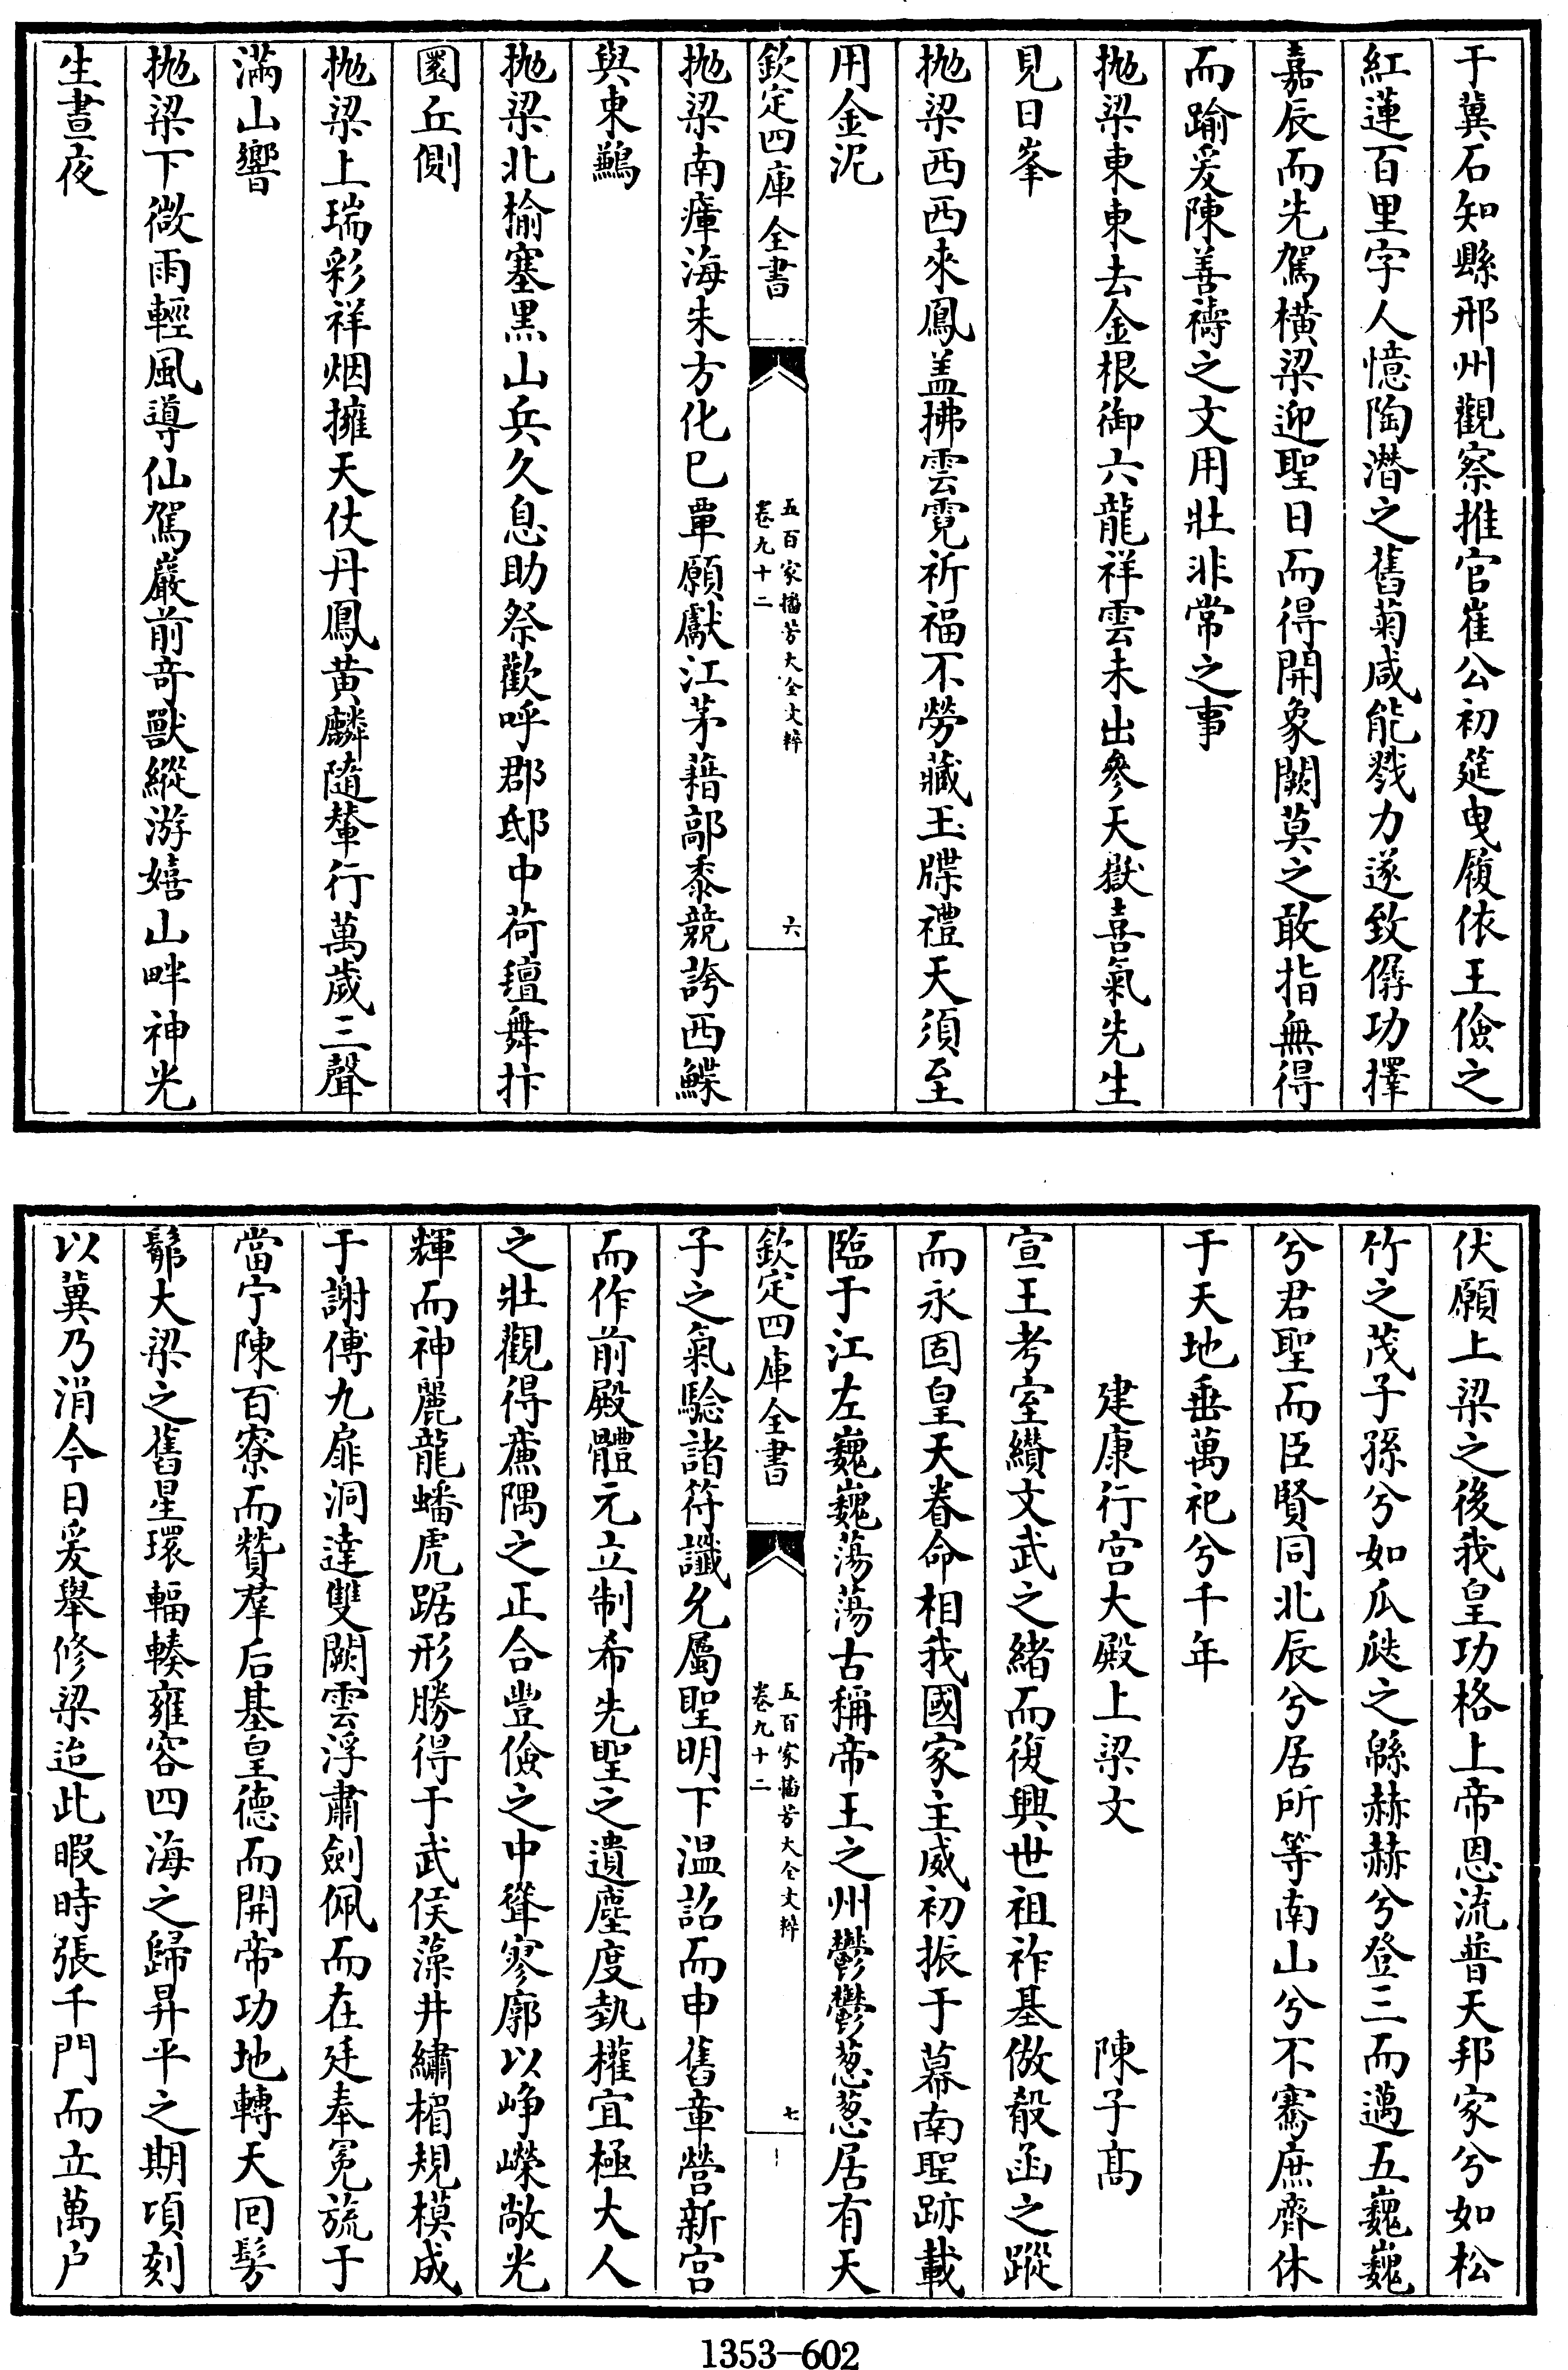 于冀石知縣邢州觀察推官崔公初筵曳履依王儉之
紅蓮百里字人憶陶潛之舊菊咸能戮力遂致僝功擇
嘉辰而先駕橫梁迎聖日而得開象闕莫之敢指無得
而踰爰陳善禱之文用壯非常之事
拋梁東東去金根御六龍祥雲未出參天嶽喜氣先生
見日峯
拋梁西西來鳳盖拂雲霓祈福不勞藏玉牒禮天須至
用金泥
欽定四庫全書
五百家播芳大全文粹
卷九十二
六
拋梁南瘴海朱方化已覃願獻江茅藉鄗黍競誇西鰈
與東鶼
拋梁北榆塞黑山兵久息助祭歡呼郡邸中荷氊舞抃
圜丘側
拋梁上瑞彩祥烟擁天仗丹鳳黃麟隨輦行萬歲三聲
滿山響
拋梁下微雨輕風導仙駕巖前奇獸縱游嬉山畔神光
生晝夜
伏願上梁之後我皇功格上帝恩流普天邦家兮如松
竹之茂子孫兮如瓜瓞之緜赫赫兮登三而邁五巍巍
兮君聖而臣賢同北辰兮居所等南山兮不騫庶齊休
于天地垂萬祀兮千年
建康行宮大殿上梁文 陳子高
宣王考室纘文武之緒而復興世祖祚基倣殽函之蹤
而永固皇天眷命相我國家主威初振于幕南聖跡載
臨于江左巍巍蕩蕩古稱帝王之州鬱鬱葱葱居有天
欽定四庫全書
五百家播芳大全文粹
卷九十二
七
子之氣騐諸符讖允屬聖明下温詔而申舊章營新宮
而作前殿體元立制希先聖之遺塵度埶權宜極大人
之壯觀得㢘隅之正合豐儉之中聳寥廓以崢嶸敞光
輝而神麗龍蟠虎踞形勝得于武侯藻井繡楣規模成
于謝傅九扉洞達雙闕雲浮肅劍佩而在廷奉冕旒于
當宁陳百寮而贊羣后基皇德而開帝功地轉天回髣
髴大梁之舊星環輻輳雍容四海之歸昇平之期頃刻
以冀乃涓今日爰舉修梁迨此暇時張千門而立萬户
1353—602